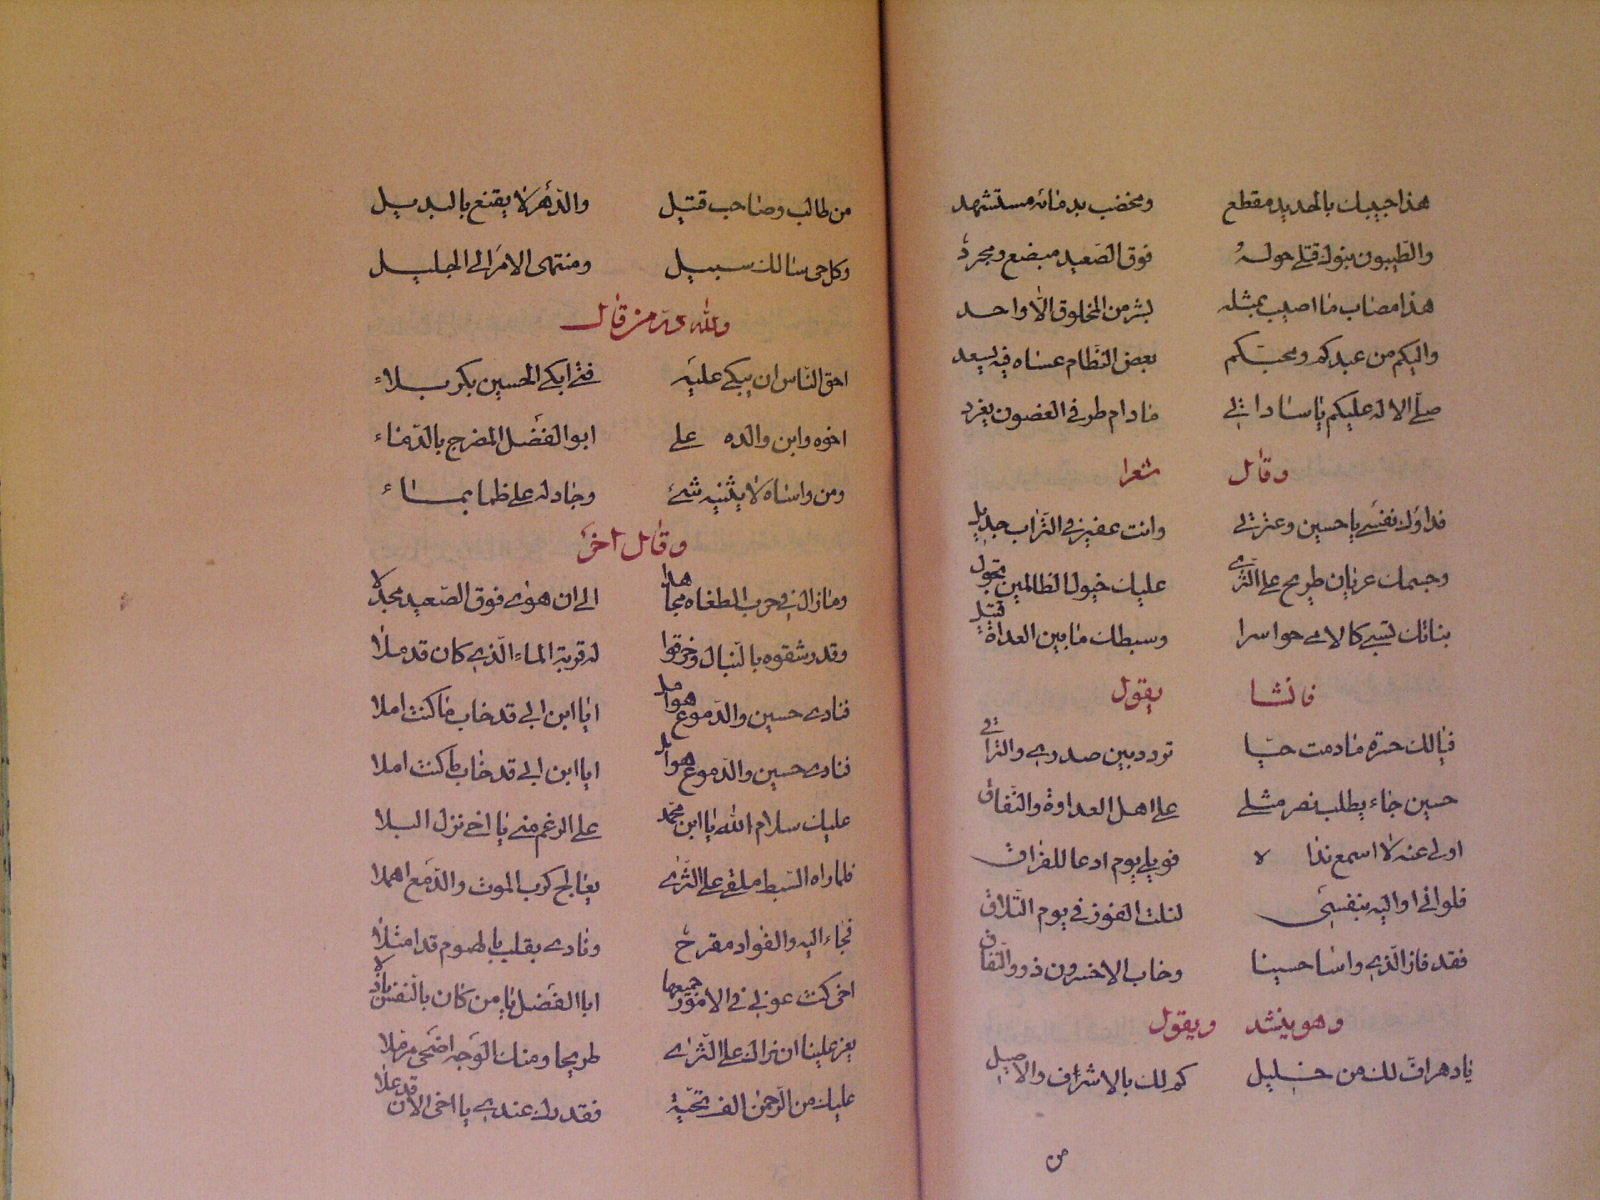 هذا حبيبك بالحديد مقطع ومخضب بدمائه مستشهد
والطيبون بنوك قتلى حوله فوق الصعيد مبضع ومجرد
هذا مصاب ما اصيب بمثله بشر من المخلوق الا واحد
واليكم من عبدكم ومحبكم بعض النظام عساه فيه يسعد
صلى الاله عليكم يا ساداتي مادام طير في الغصون يغرد
وقال شعرا
فداؤك نفسي يا حسين وعترتي وانت عفير في التراب جديل
وجسمك عريان طريح على الثرى عليك خيول الظالمين تجول
بناتك تسبى كالاماء حواسرا وسبطك ما بين العداة قتيل
فانشا يقول
فيالك حسرة مادمت حيا تردد بين صدري والتراقي
حسين جاء يطلب نصر مثلي على اهل العداوة والنفاق
اولي عنه لا اسمع نداه فويلي يوم ادعا للفراق
فلو اني اواليه بنفسي لنلت الفوز في يوم التلاق
فقد فاز الذي واسا حسينا وخاب الاخسرون ذوو النفاق
وهو ينشد ويقول
يا دهر اف لك من خليل كم لك بالاشراق والاصيل
من
من طالب وصاحب قتيل والدهر لا يقنع بالبديل
وكل حي سالك سبيل ومنتهى الامر الى الجليل
ولله در من قال
احق الناس ان يبكى عليه فتى ابكى الحسين بكربلاء
اخوه وابن والده علي ابو الفضل المضرج بالدماء
ومن واساه لا يثنيه شئ وجاد له على ظما بماء
وقال اخر
وما زال في حرب الطغاة مجاهدا الى ان هوى فوق الصعيد مجدلا
وقد رشقوه بالنبال وخرقوا له قربة الماء الذي كان قد ملا
فنادى حسين والدموع هوامل ايا ابن ابي قد خاب ما كنت املا
فنادى حسين والدموع هوامل ايا ابن ابي قد خاب ما كنت املا
عليك سلام الله يا ابن محمد على الرغم مني يا اخي نزل البلا
فلما راه السبط ملقى على الثرى يعالج كرب الموت والدمع اهملا
فجاء اليه والفواد مقرح ونادى بقلب بالهموم قد امتلا
اخي كنت عوني في الامور جميعها ابا الفضل يا من كان بالنفس باذلا
يعز علينا ان نراك على الثرى طريحا ومنك الوجه اضحى مرملا
عليك من الرحمن الف تحية فقدرك عندي يا اخي الان قد علا